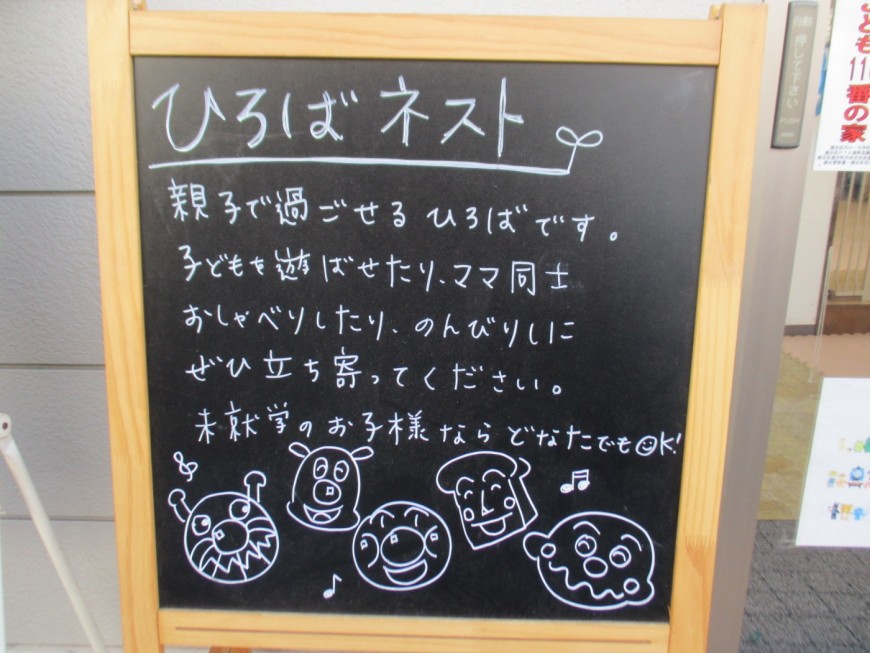 ひろばネスト
親子で過ごせるひろばです。
子どもを遊ばせたり、ママ同士
おしゃべりしたり、のんびりしに
ぜひ立ち寄ってください。
未就学のお子様ならどなたでも☺K!
自動
押して下さい
こども
110
番の家